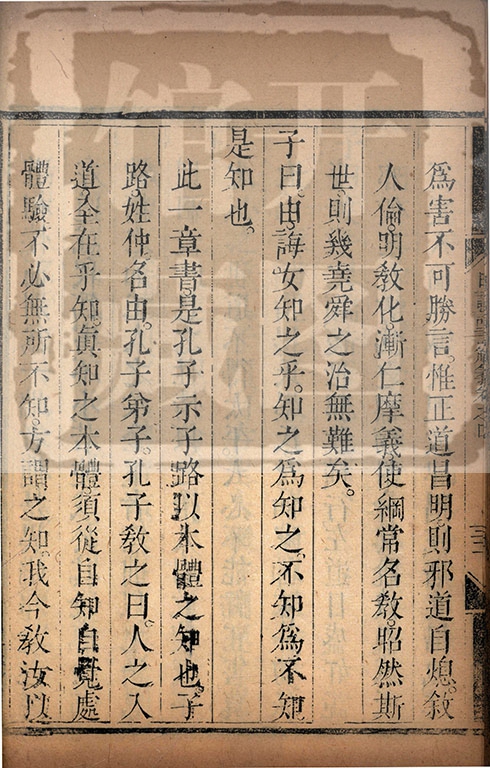 爲害不可勝言。惟正道昌明。則邪道自熄。敘
人倫。明敎化。漸仁摩義。使綱常名敎。昭然斯
世。則幾堯舜之治無難矣。
子曰。由。誨女知之乎。知之爲知之。不知爲不知
是知也。
此一章書。是孔子示子路以本體之知也。子
路。姓仲。名由。孔子弟子。孔子敎之曰。人之入
道。全在乎知。眞知之本體。須從自知自覺處
體驗。不必無所不知。方謂之知。我今敎汝以